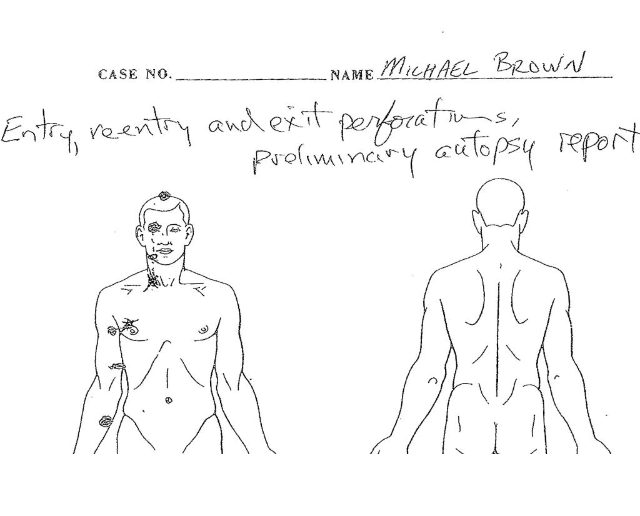 CASE NO. NAME MICHAEL BROWN
Entry, reentry and exit perforations,
preliminary autopsy report